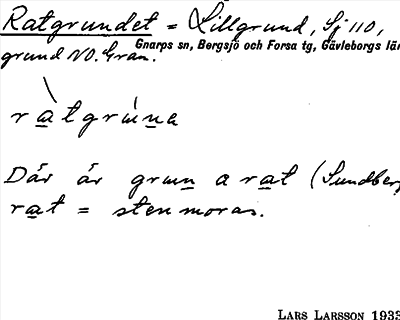 Ratgrundet = Lillgrund, Sj 110,
Gnarps sn, Bergsjö och Forsa tg, Gävleborgs län
grund NO. Gran.
ratgruna
Där är grun a rat (Sundberg
rat = stenmoras.
LARS LARSSON 1933